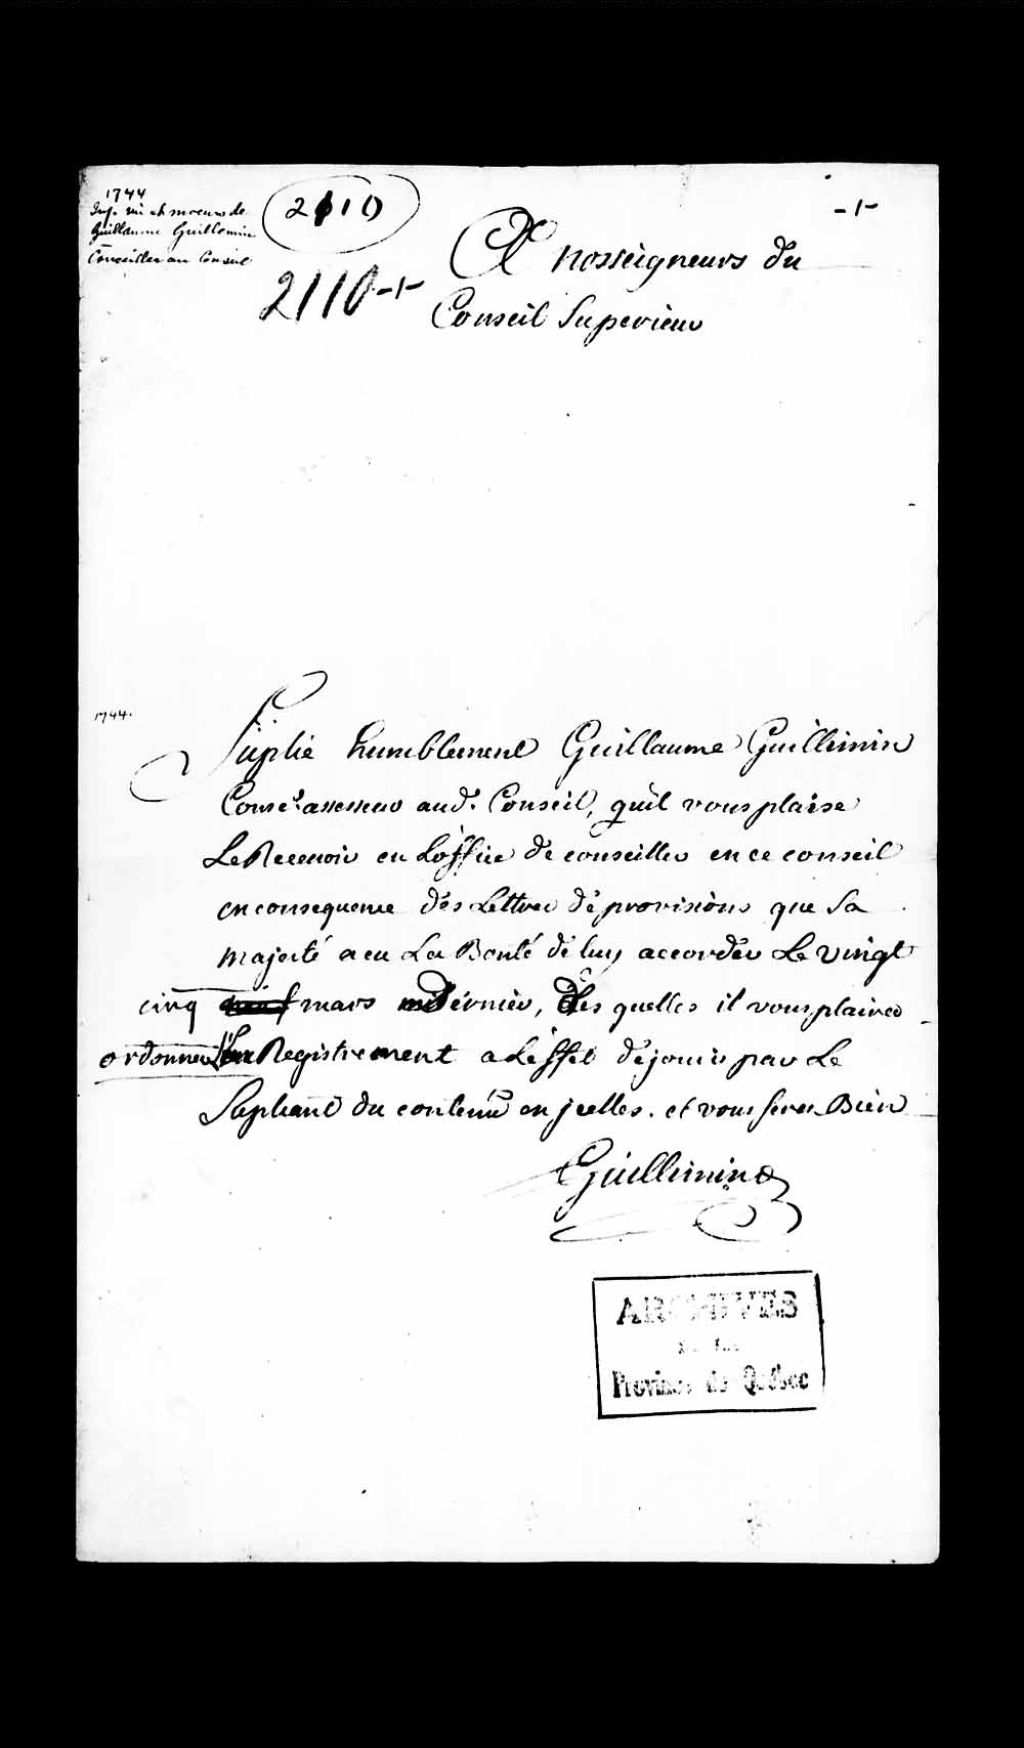 1744
Inf. vie et moeurs de
Guillaume Guillemin
Conseiller au Conseil
2110
-1-
2110-1-
A nosseigneurs du
Conseil Superieur
1744.
Suplie humblement Guillaume Guillimin
Conser. assesseur aud. Conseil, quil vous plaise
Le Recevoir en Loffice de conseiller en ce conseil
en consequence des Lettres de provisions que Sa
majesté a eu La Bonté de luy accorder Le vingt
cinq mars dernier, des quelles il vous plaira
ordonner Registrement a Leffet de jouir par Le
Supliant du contenu en jcelles. et vous feres Bien
Guillimin
ARCHIVES
de la
Province de Québec